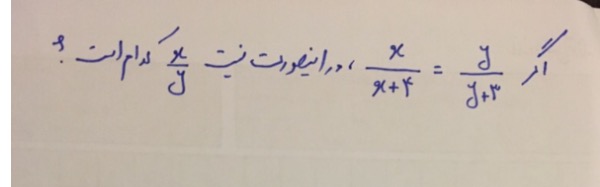 اگر y/(y+۳) = x/(x+۴) ، در اینصورت نسبت x/y کدام است ؟